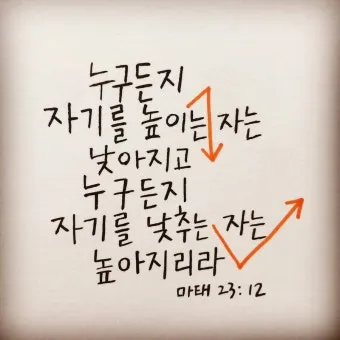 누구든지
자기를 높이는 자는
낮아지고
누구든지
자기를 낮추는 자는
높아지리라
마태 23:12